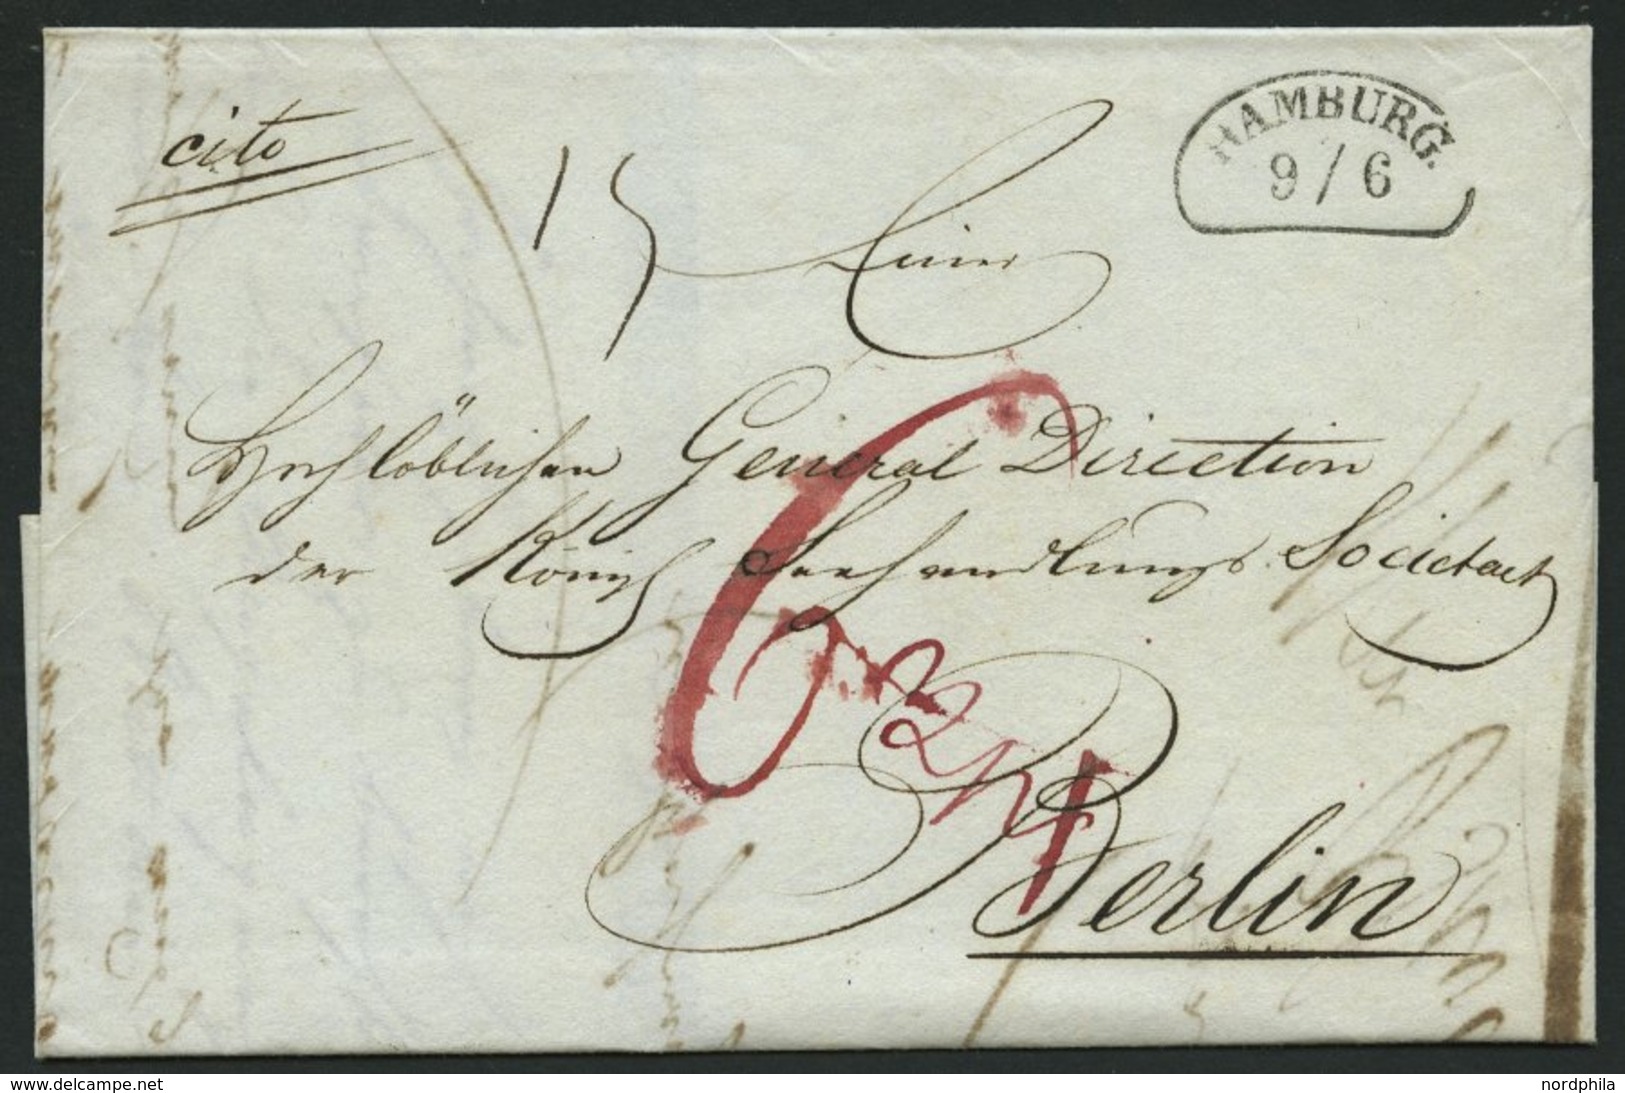 cito
HAMBURG.
9/6
15
Einer
Hochlöblichen General Direction
der Königl Seehandlungs Societaet
6
Berlin
www.delcampe.net
nordphila